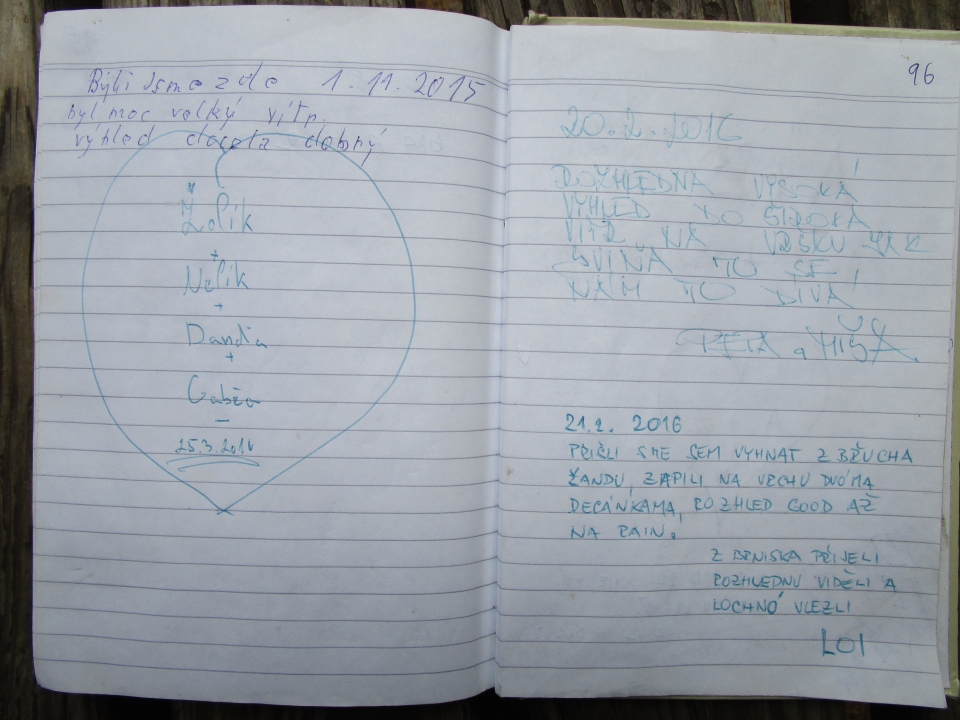 Byli jsme zde 1.11.2015
byl moc velký vítr.
výhled docela dobrý
Žolík
+
Nelik
+
Danda
+
Gabča
25.3.2016
96
20.2.2016
ROZHLEDNA VYSOKÁ
VÝHLED DO ŠIROKA
VÍTR NA VRŠKU JAK
SVIŇA TO SE
NÁM TO DÍVÁ
PÉŤA a MÍŠA
21.2. 2016
PŘIŠLI SME SEM VYHNAT Z BŘUCHA
ŽANDU, ZAPILI NA VRCHU DVÓMA
DECÁNKAMA, ROZHLED GOOD AŽ
NA RAIN.
Z BRNISKA PŘIJELI
ROZHLEDNU VIDĚLI A
LOCHNÓ VLEZLI
LOI